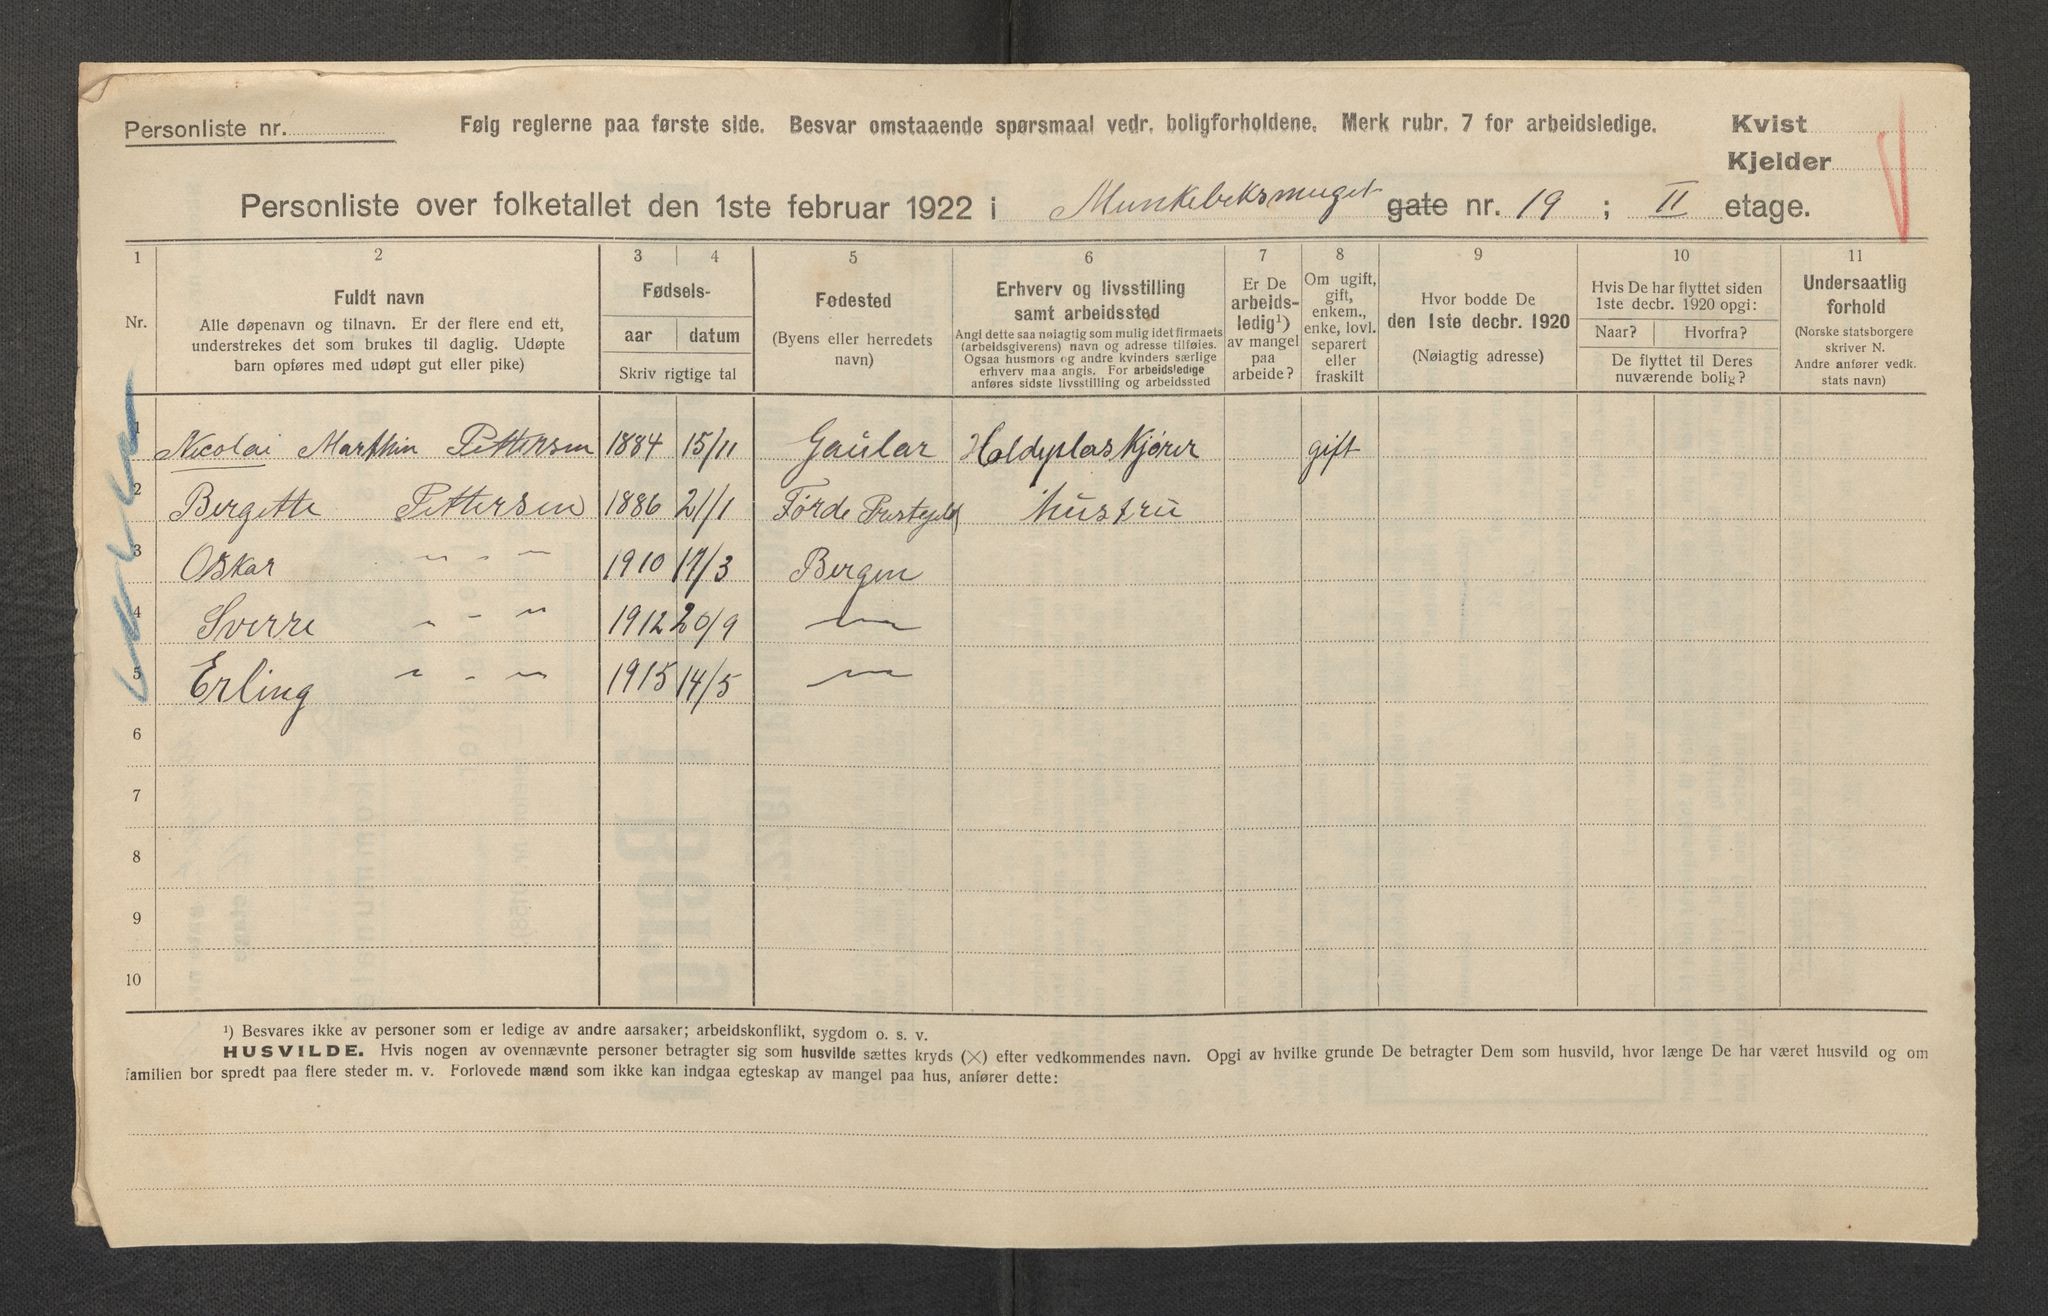 Personliste nr.
Følg reglerne paa første side. Besvar omstaaende spørsmaal vedr. boligforholdene. Merk rubr. 7 for arbeidsledige.
Kvist
Kjelder
Personliste over folketallet den 1ste februar 1922 i Munkebeksmuget gate nr. 19 ; II etage.
1 2 3 4 5 6 7 8 9 10 11
Nr.
Fuldt navn
Alle døpenavn og tilnavn. Er der flere end ett,
understrekes det som brukes til daglig. Udøpte
barn opføres med udøpt gut eller pike)
Fødsels-
aar datum
Skriv rigtige tal
Fødested
(Byens eller herredets
navn)
Erhverv og livsstilling
samt arbeidssted
Angi dette saa nøiagtig som mulig idet firmaets
(arbeidsgiverens) navn og adresse tilføies.
Ogsaa husmors og andre kvinders særlige
erhverv maa angis. For arbeidsledige
anføres sidste livsstilling og arbeidssted
Er De
arbeids-
ledig¹)
av mangel
paa
arbeide?
Om ugift,
gift,
enkem.,
enke, lovl.
separert
eller
fraskilt
Hvor bodde De
den 1ste decbr. 1920
(Nøiagtig adresse)
Hvis De har flyttet siden
1ste decbr. 1920 opgi:
Naar? Hvorfra?
De flyttet til Deres
nuværende bolig?
Undersaatlig
forhold
(Norske statsborgere
skriver N.
Andre anfører vedk.
stats navn)
1 Nicolai Marthin Pettersen 1884 15/11 Gaular Holdeplaskjører gift
2 Bergette Pettersen 1886 21/1 Førde Prestejeld hustru
3 Oskar " - " 1910 17/3 Bergen
4 Sverre " - " 1912 20/9 — " —
5 Erling " - " 1915 14/5 — " —
6
7
8
9
10
¹) Besvares ikke av personer som er ledige av andre aarsaker; arbeidskonflikt, sygdom o. s. v.
HUSVILDE. Hvis nogen av ovennævnte personer betragter sig som husvilde sættes kryds (×) efter vedkommendes navn. Opgi av hvilke grunde De betragter Dem som husvild, hvor længe De har været husvild og om
familien bor spredt paa flere steder m. v. Forlovede mænd som ikke kan indgaa egteskap av mangel paa hus, anfører dette: